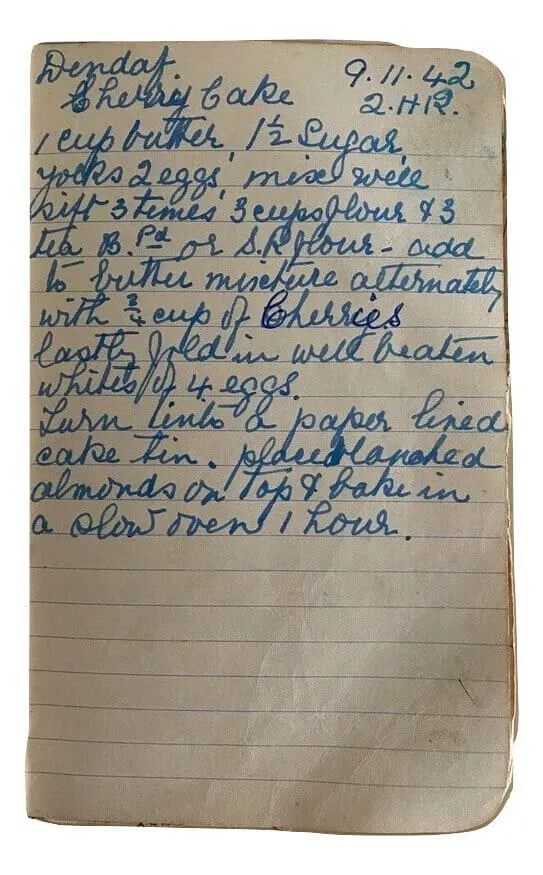 Denday 9.11.42
Cherry Cake 2.H.R.
1 cup butter, 1½ Sugar,
yocks 2 eggs, mix well
sift 3 times 3 cups flour & 3
tea B. Pd or S.R flour - add
to butter mixture alternately
with ¾ cup of Cherries
lastly fold in well beaten
whites of 4 eggs.
Turn into a paper lined
cake tin. place blanched
almonds on top & bake in
a slow oven 1 hour.